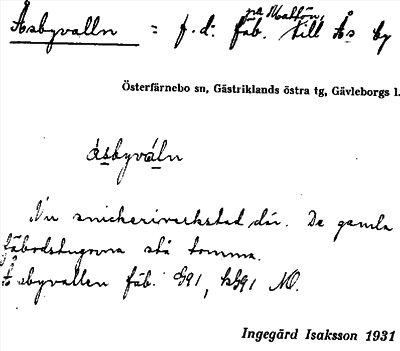 på Mattön,
Åsbyvalln = f.d. fäb. till Ås by
Österfärnebo sn, Gästriklands östra tg, Gävleborgs l.
åsbyváln
Nu snickeriverkstad där. De gamla
fäbodstugorna stå tomma.
Åsbyvallen fäb. G91, NO.
Ingegärd Isaksson 1931